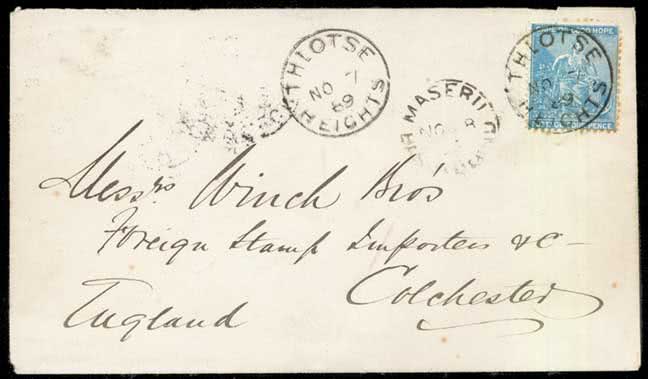 'THLOTSE
NO 7
89
HEIGHTS
GOOD HOPE
'THLOTSE
NO 7
89
HEIGHTS
PENCE
NO 8
Messrs Winch Bro's
Foreign Stamp Importers &c—
Colchester
England